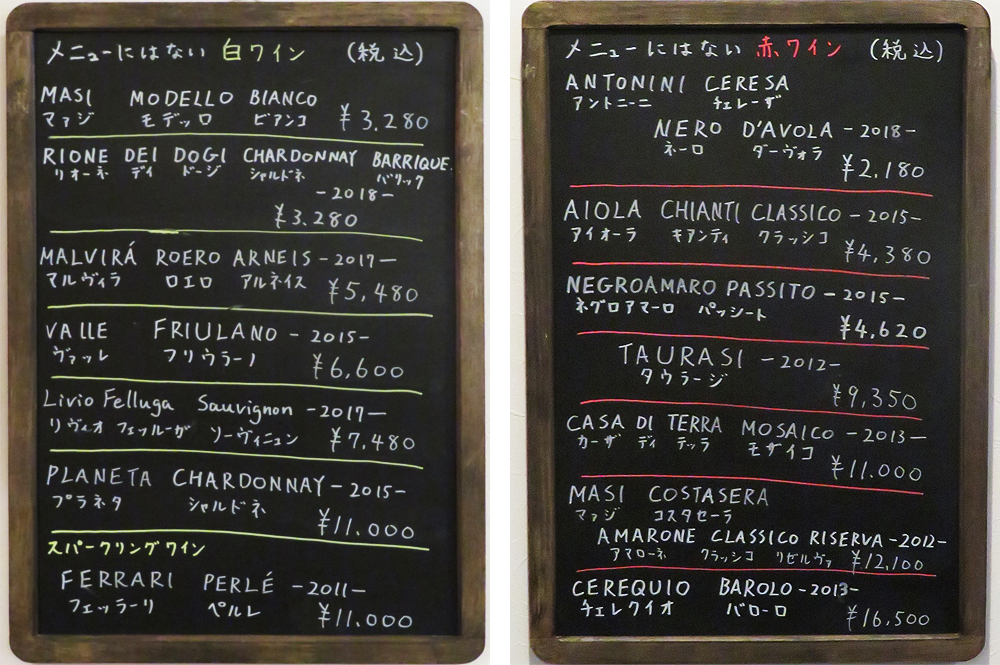 メニューにはない 白ワイン (税込)
MASI MODELLO BIANCO
マァジ モデッロ ビアンコ ¥3.280
RIONE DEI DOGI CHARDONNAY BARRIQUE
リオーネ ディ ドージ シャルドネ バリック
-2018-
¥3.280
MALVIRÁ ROERO ARNEIS -2017-
マルヴィラ ロエロ アルネイス ¥5,480
VALLE FRIULANO -2015-
ヴァッレ フリウラーノ ¥6,600
Livio Felluga Sauvignon -2017-
リヴィオ フェッルーガ ソーヴィニョン ¥7,480
PLANETA CHARDONNAY -2015-
プラネタ シャルドネ ¥11.000
スパークリングワイン
FERRARI PERLÉ -2011-
フェッラーリ ペルレ ¥11.000
メニューにはない 赤ワイン (税込)
ANTONINI CERESA
アントニーニ チェレーザ
NERO D'AVOLA -2018-
ネーロ ダーヴォラ ¥2,180
AIOLA CHIANTI CLASSICO -2015-
アイオーラ キアンティ クラッシコ ¥4,380
NEGROAMARO PASSITO -2015-
ネグロアマーロ パッシート ¥4,620
TAURASI -2012-
タウラージ ¥9,350
CASA DI TERRA MOSAICO -2013-
カーザ ディ テッラ モザイコ ¥11.000
MASI COSTASERA
マァジ コスタセーラ
AMARONE CLASSICO RISERVA -2012-
アマローネ クラッシコ リゼルヴァ ¥12,100
CEREQUIO BAROLO -2013-
チェレクイオ バローロ ¥16,500